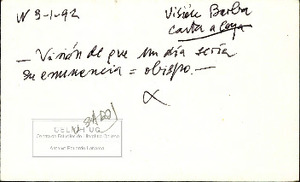 N 3-1-92
Visión Barba
carta a Goya
— Visión de que un día sería
su eminencia = obispo. —
α
Archivo Fernando